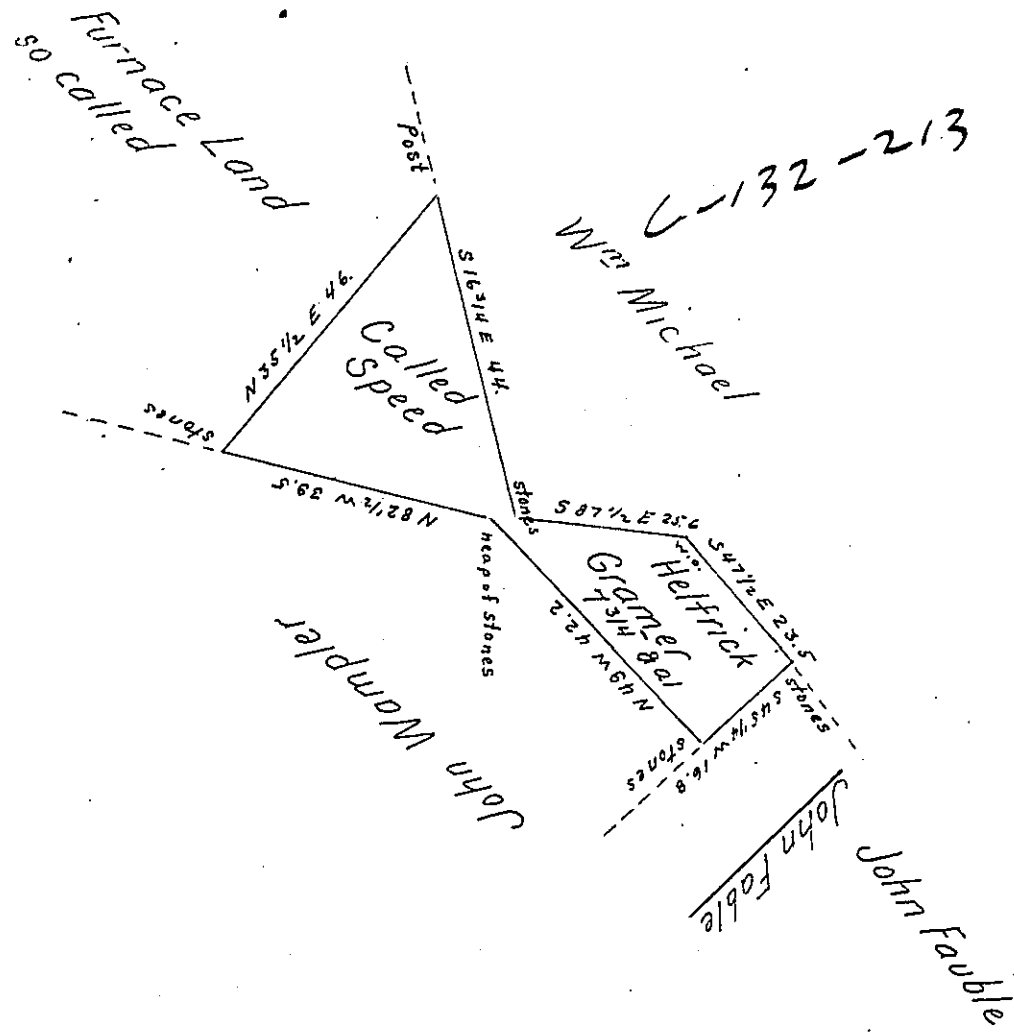 Furnace Land
so called
C-132-213
Post
Wm Michael
N 35 1/2 E 46.
S 16 3/4 E 44.
Called
Speed
stones
N 82 1/2 W 39.5
heap of stones
stones
S 87 1/2 E 25.6
W.O.
S 47 1/2 E 23.5
Helfrick
Gramer
7 3/4 - gal
N 49 W 42.2
stones
S 45 1/4 W 16.8
stones
John Wampler
John Fable
John Fauble